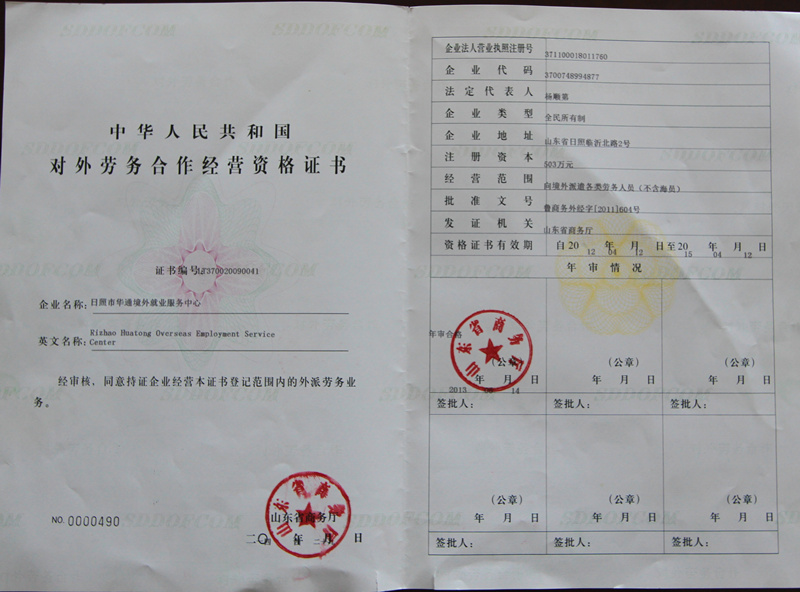 中华人民共和国
对外劳务合作经营资格证书
证书编号 LF370020090041
企业名称: 日照市华通境外就业服务中心
英文名称: Rizhao Huatong Overseas Employment Service
Center
经审核、同意持证企业经营本证书登记范围内的外派劳务业
务。
NO. 0000490
山东省商务厅
二〇 年 月 日
企业法人营业执照注册号 371100018011760
企业代码 3700748994877
法定代表人
企业类型 全民所有制
企业地址 山东省日照临沂北路2号
注册资本 503万元
经营范围 向境外派遣各类劳务人员(不含海员)
批准文号 鲁商务外经字[2011]604号
发证机关 山东省商务厅
资格证书有效期 自20 12 年 04 月 12 日至20 15 年 04 月 12 日
年审情况
年审合格
山东省商务厅
(公章) (公章) (公章)
年 月 日 年 月 日 年 月 日
2013 14
签批人: 签批人: 签批人:
(公章) (公章) (公章)
年 月 日 年 月 日 年 月 日
签批人: 签批人: 签批人:
SDDOFCOM